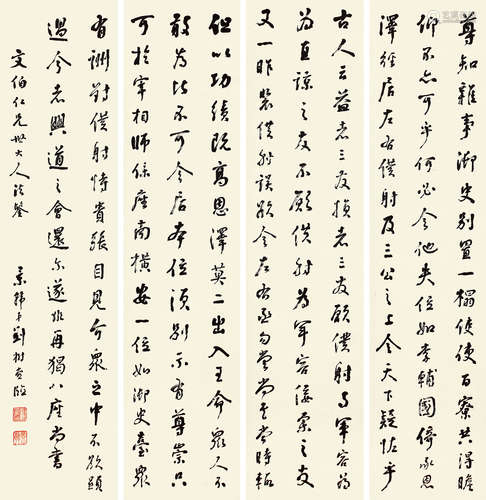 尊知雜事御史別置一榻使使百寮共得瞻
仰不亦可乎何必令他失位如李輔國倚承恩
澤徑居左右僕射及三公之上令天下疑怪乎
古人云益者三友損者三友願僕射与軍容為
為直諒之友不願僕射為軍容佞柔之友
又一昨裴僕射誤欲令左右丞勾當尚書當時輒
但以功績既高恩澤莫二出入王命眾人不
敢為比不可令居本位須別示有尊崇只
可於宰相師保座南橫安一位如御史臺眾
有酬對僕射恃貴張目見尤眾之中不欲顯
過今者興道之會還尔遂非再猲八座尚書
文伯仁兄世大人法鑒
弟劉樹臨